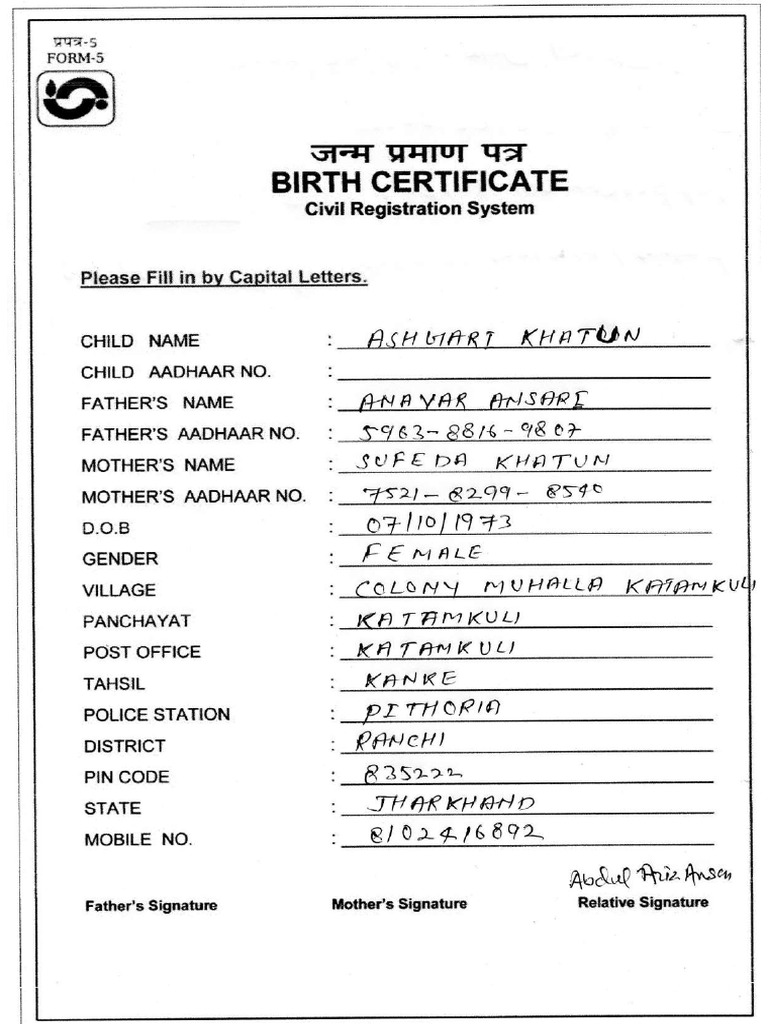 प्रपत्र-5
FORM-5
जन्म प्रमाण पत्र
BIRTH CERTIFICATE
Civil Registration System
Please Fill in by Capital Letters.
CHILD NAME : ASHGARI KHATUN
CHILD AADHAAR NO. :
FATHER'S NAME : ANAVAR ANSARI
FATHER'S AADHAAR NO. : 5963-8816-9807
MOTHER'S NAME : SUFEDA KHATUN
MOTHER'S AADHAAR NO. : 7521-8299-8540
D.O.B : 07/10/1973
GENDER : FEMALE
VILLAGE : COLONY MUHALLA KATAMKULI
PANCHAYAT : KATAMKULI
POST OFFICE : KATAMKULI
TAHSIL : KANKE
POLICE STATION : PITHORIA
DISTRICT : RANCHI
PIN CODE : 835222
STATE : JHARKHAND
MOBILE NO. : 8102416892
Abdul Aziz Ansari
Father's Signature Mother's Signature Relative Signature